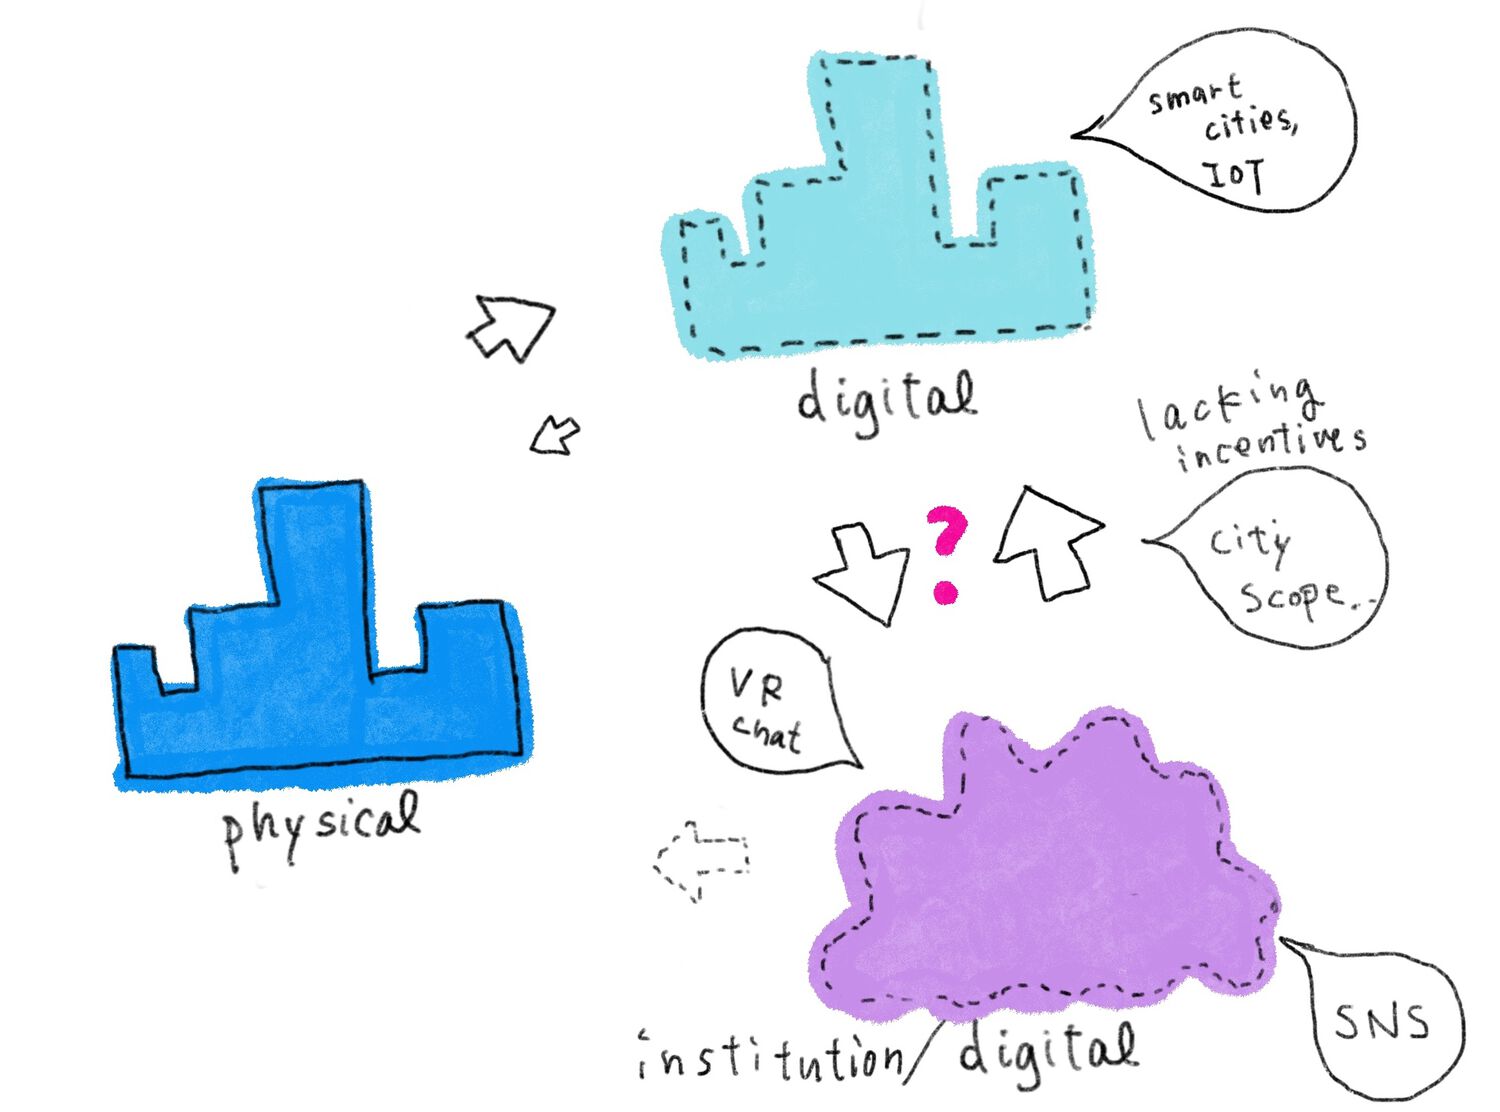 smart
cities,
IoT
digital
lacking
incentives
?
city
scope...
VR
chat
physical
institution/digital
SNS